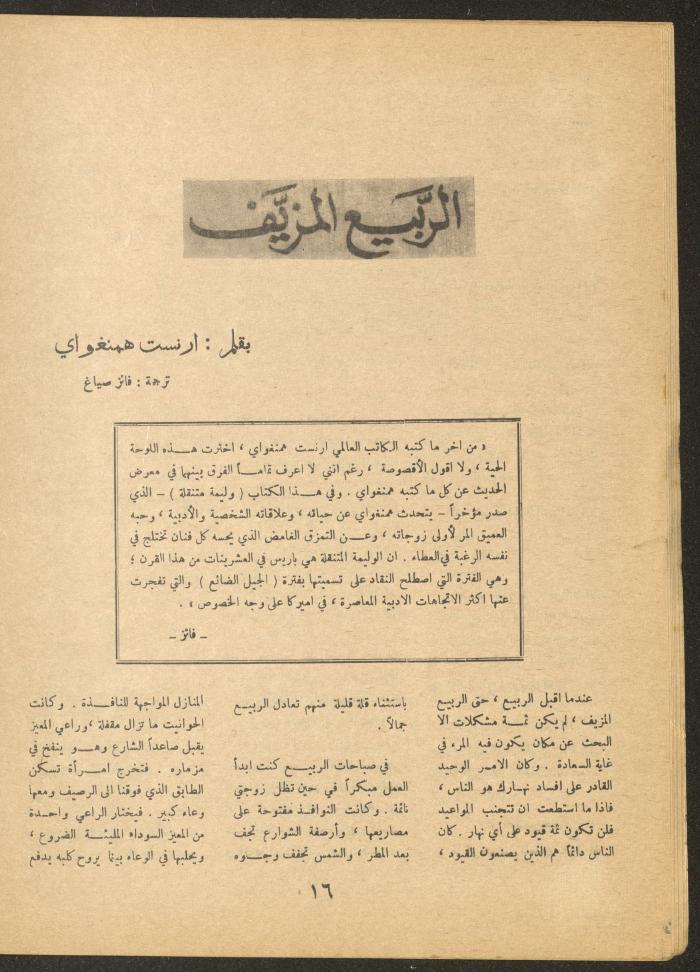 الرَّبيع المزيَّف
بقلم : ارنست همنغواي
ترجمة : فائز صياغ
« من اخر ما كتبه الكاتب العالمي ارنست همنغواي ، اخترت هذه اللوحة
الحية ، ولا اقول الأقصوصة ، رغم انني لا اعرف تماماً الفرق بينهما في معرض
الحديث عن كل ما كتبه همنغواي . وفي هذا الكتاب ( وليمة متنقلة ) – الذي
صدر مؤخراً – يتحدث همنغواي عن حياته ، وعلاقاته الشخصية والأدبية ، وحبه
العميق المر لأولى زوجاته ، وعن التمزق الغامض الذي يحسه كل فنان تختلج في
نفسه الرغبة في العطاء . ان الوليمة المتنقلة هي باريس في العشرينات من هذا القرن ؛
وهي الفترة التي اصطلح النقاد على تسميتها بفترة ( الجيل الضائع ) والتي تفجرت
عنها اكثر الاتجاهات الادبية المعاصرة ، في اميركا على وجه الخصوص » .
– فائز –
عندما اقبل الربيع ، حتى الربيع
المزيف ، لم يكن ثمة مشكلات الا
البحث عن مكان يكون فيه المرء في
غاية السعادة . وكان الامر الوحيد
القادر على افساد نهارك هو الناس ،
فاذا ما استطعت ان تتجنب المواعيد
فلن تكون ثمة قيود على أي نهار . كان
الناس دائماً هم الذين يصنعون القيود ،
باستثناء قلة قليلة منهم تعادل الربيع
جمالاً .
في صباحات الربيع كنت ابدأ
العمل مبكراً في حين تظل زوجتي
نائمة . وكانت النوافذ مفتوحة على
مصاريعها ، وأرصفة الشوارع تجف
بعد المطر ، والشمس تجفف وجوه
المنازل المواجهة للنافذة . وكانت
الحوانيت ما تزال مقفلة ، وراعي المعيز
يقبل صاعداً الشارع وهو ينفخ في
مزماره . فتخرج امرأة تسكن
الطابق الذي فوقنا الى الرصيف ومعها
وعاء كبير . فيختار الراعي واحدة
من المعيز السوداء المليئة الضروع ،
ويحلبها في الوعاء بينما يروح كلبه يدفع
١٦